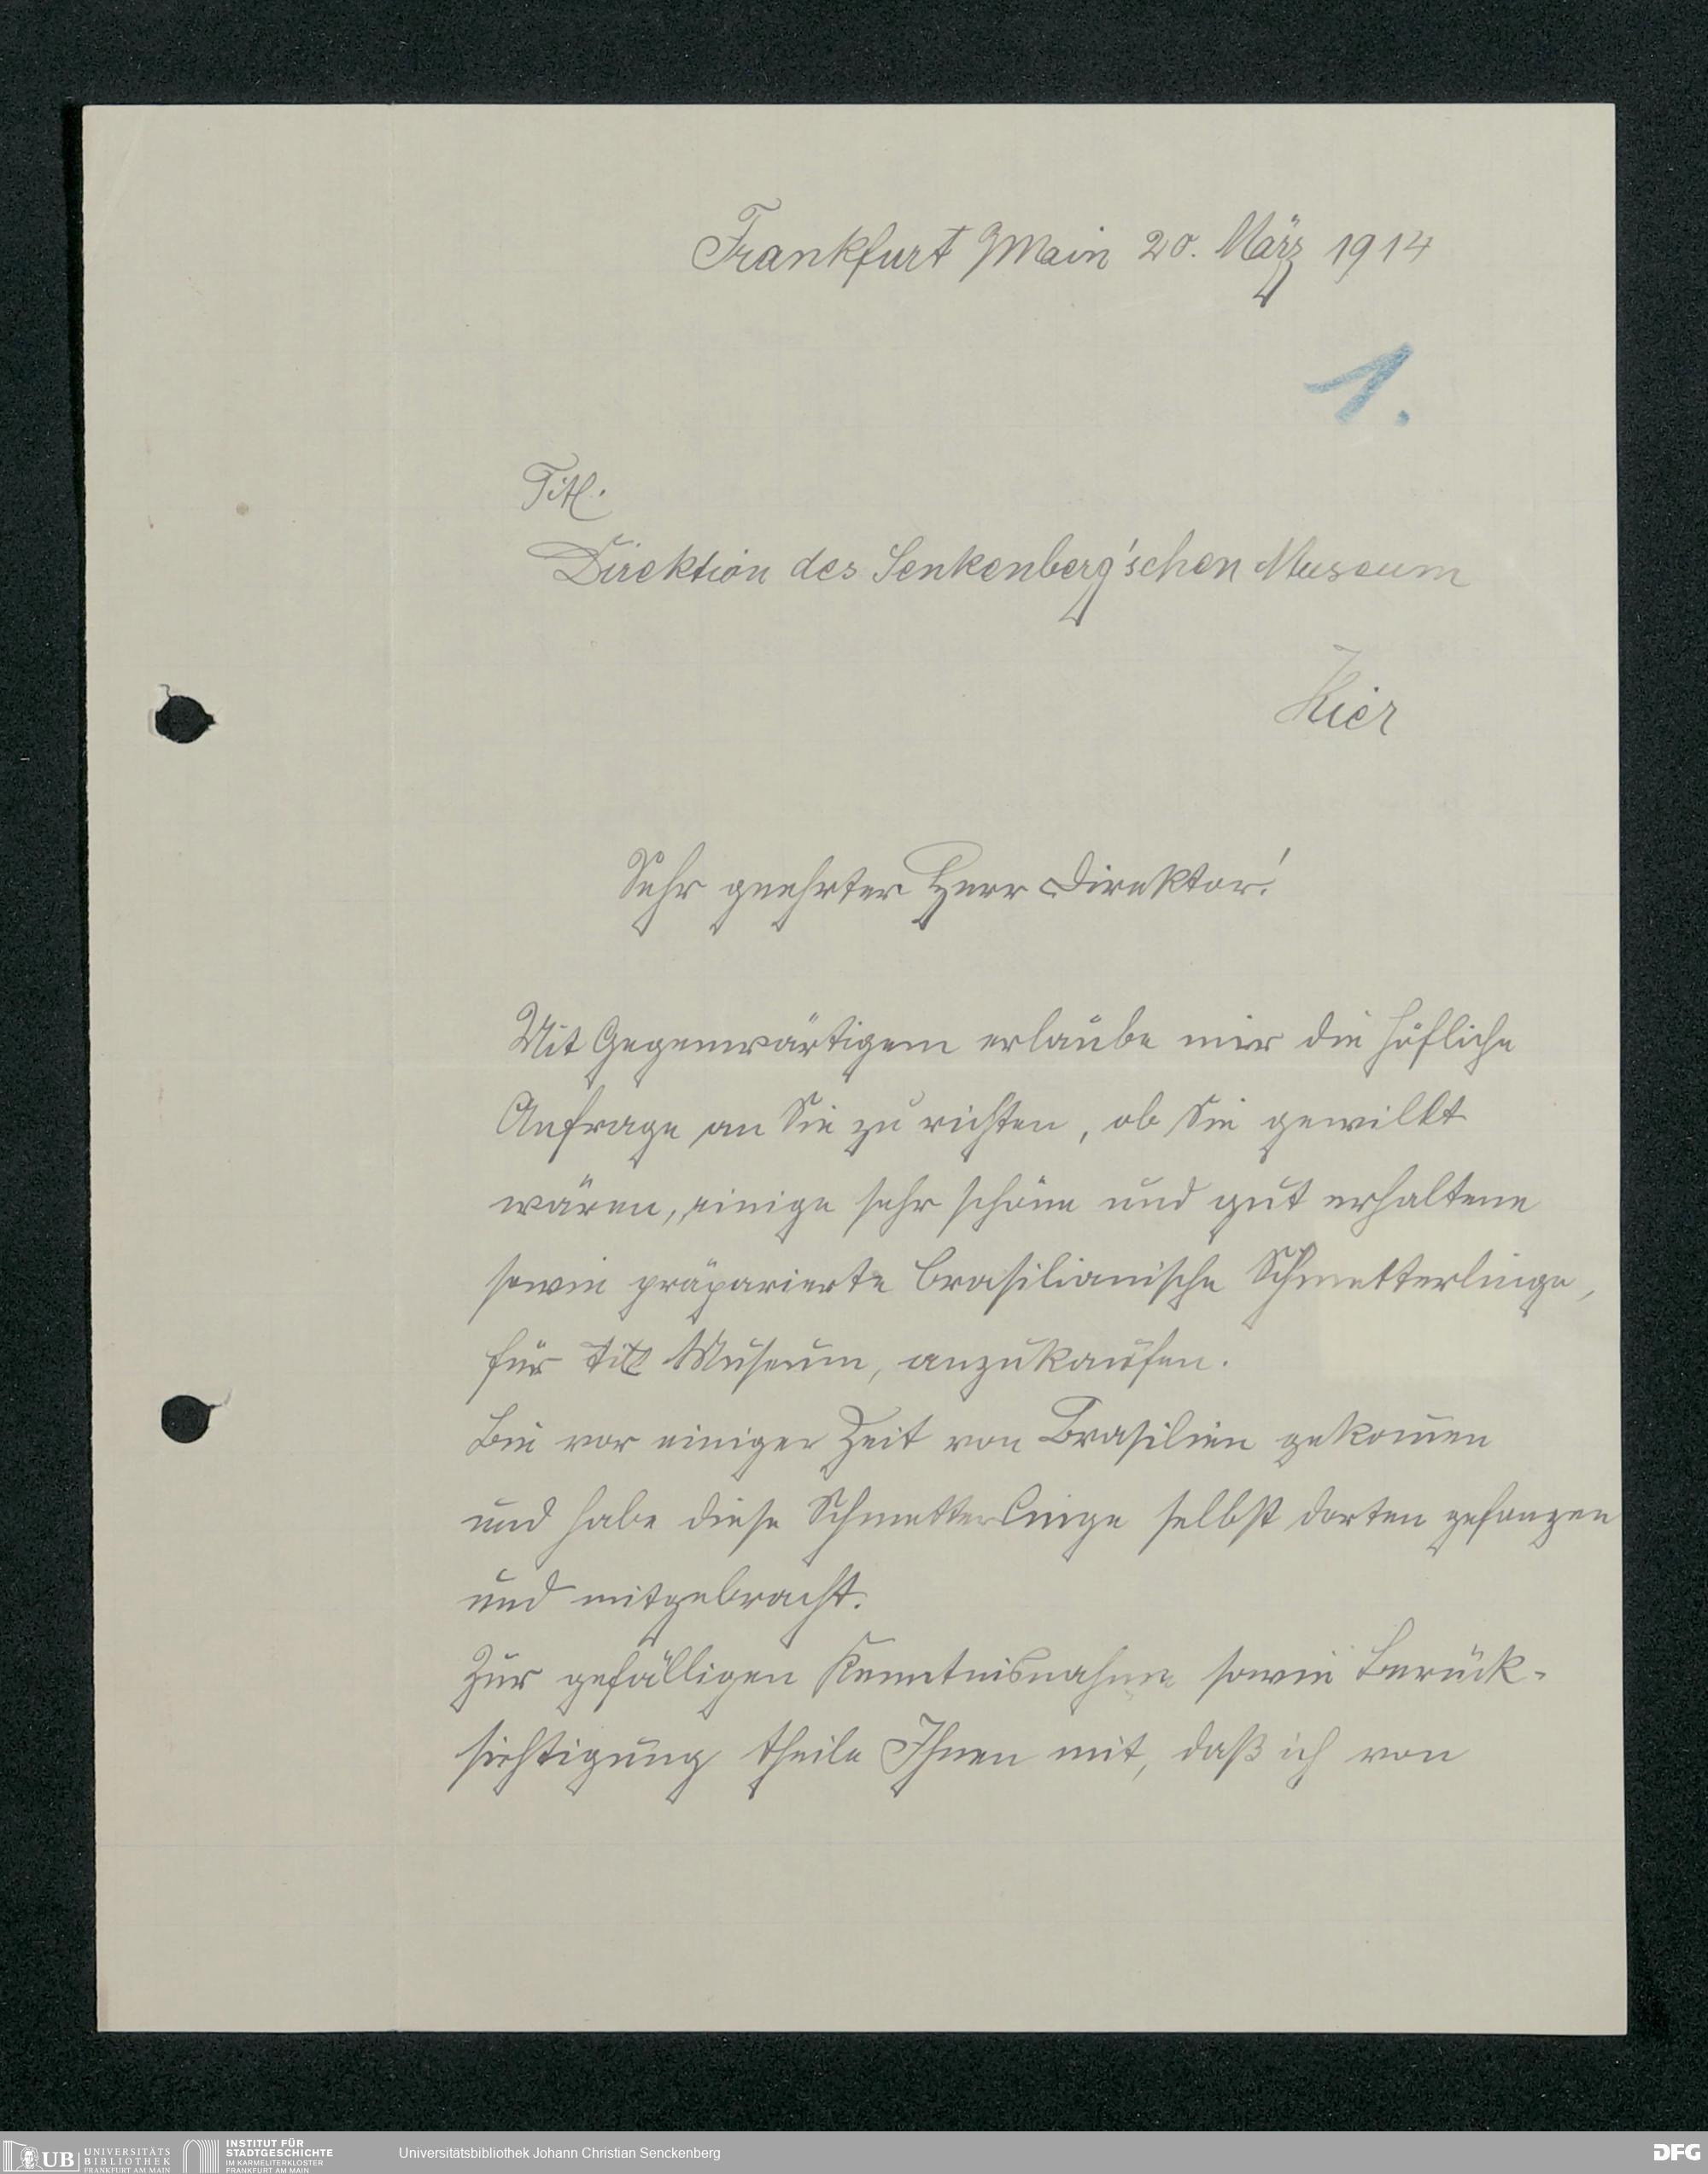 Frankfurt Main 20. März 1914
1.
Titl.
Direktion des Senkenberg'schen Museum
Hier
Sehr geehrter Herr Direktor!
Mit Gegenwärtigem erlaube mir die höfliche
Anfrage an Sie zu richten, ob Sie gewillt
wären, einige sehr schöne und gut erhaltene
sowie präparierte brasilianische Schmetterlinge,
für Titl Museum, anzukaufen.
Bin vor einiger Zeit von Brasilien gekom̄en
und habe diese Schmetterlinge selbst dorten gefangen
und mitgebracht.
Zur gefälligen Kenntnisnahme sowie Berück-
sichtigung theile Ihnen mit, daß ich von
UB UNIVERSITÄTS
BIBLIOTHEK
FRANKFURT AM MAIN
INSTITUT FÜR
STADTGESCHICHTE
IM KARMELITERKLOSTER
FRANKFURT AM MAIN
Universitätsbibliothek Johann Christian Senckenberg
DFG